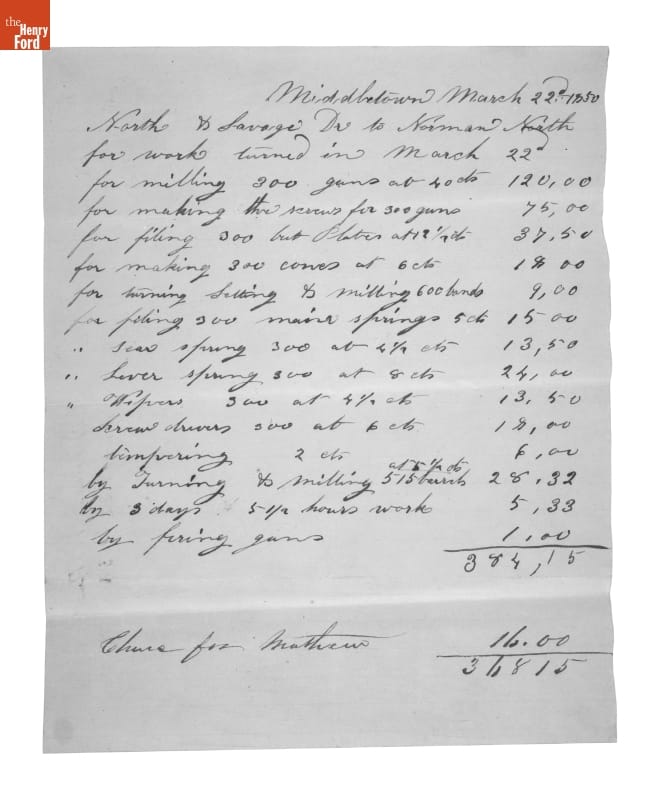 the
Henry
Ford
Middletown March 22d 1850
North & Savage Dr to Norman North
for work turned in March 22d
for milling 300 guns at 40 cts 120,00
for making the screws for 300 guns 75,00
for filing 300 but Plates at 12 1/2 cts 37,50
for making 300 cones at 6 cts 18 00
for turning Setting & milling 600 bands 9,00
for filing 300 main springs 5 cts 15 00
" Sear spring 300 at 4 1/2 cts 13,50
" Lever spring 300 at 8 cts 24,00
" Wipers 300 at 4 1/2 cts 13.50
Screw drivers 300 at 6 cts 18,00
tempering 2 cts 6,00
at 5 1/2 cts
by Turning & milling 515 28,32
by 3 days 5 1/2 hours work 5,33
by firing guns 1.00
384,15
for Mathew 16.00
36815